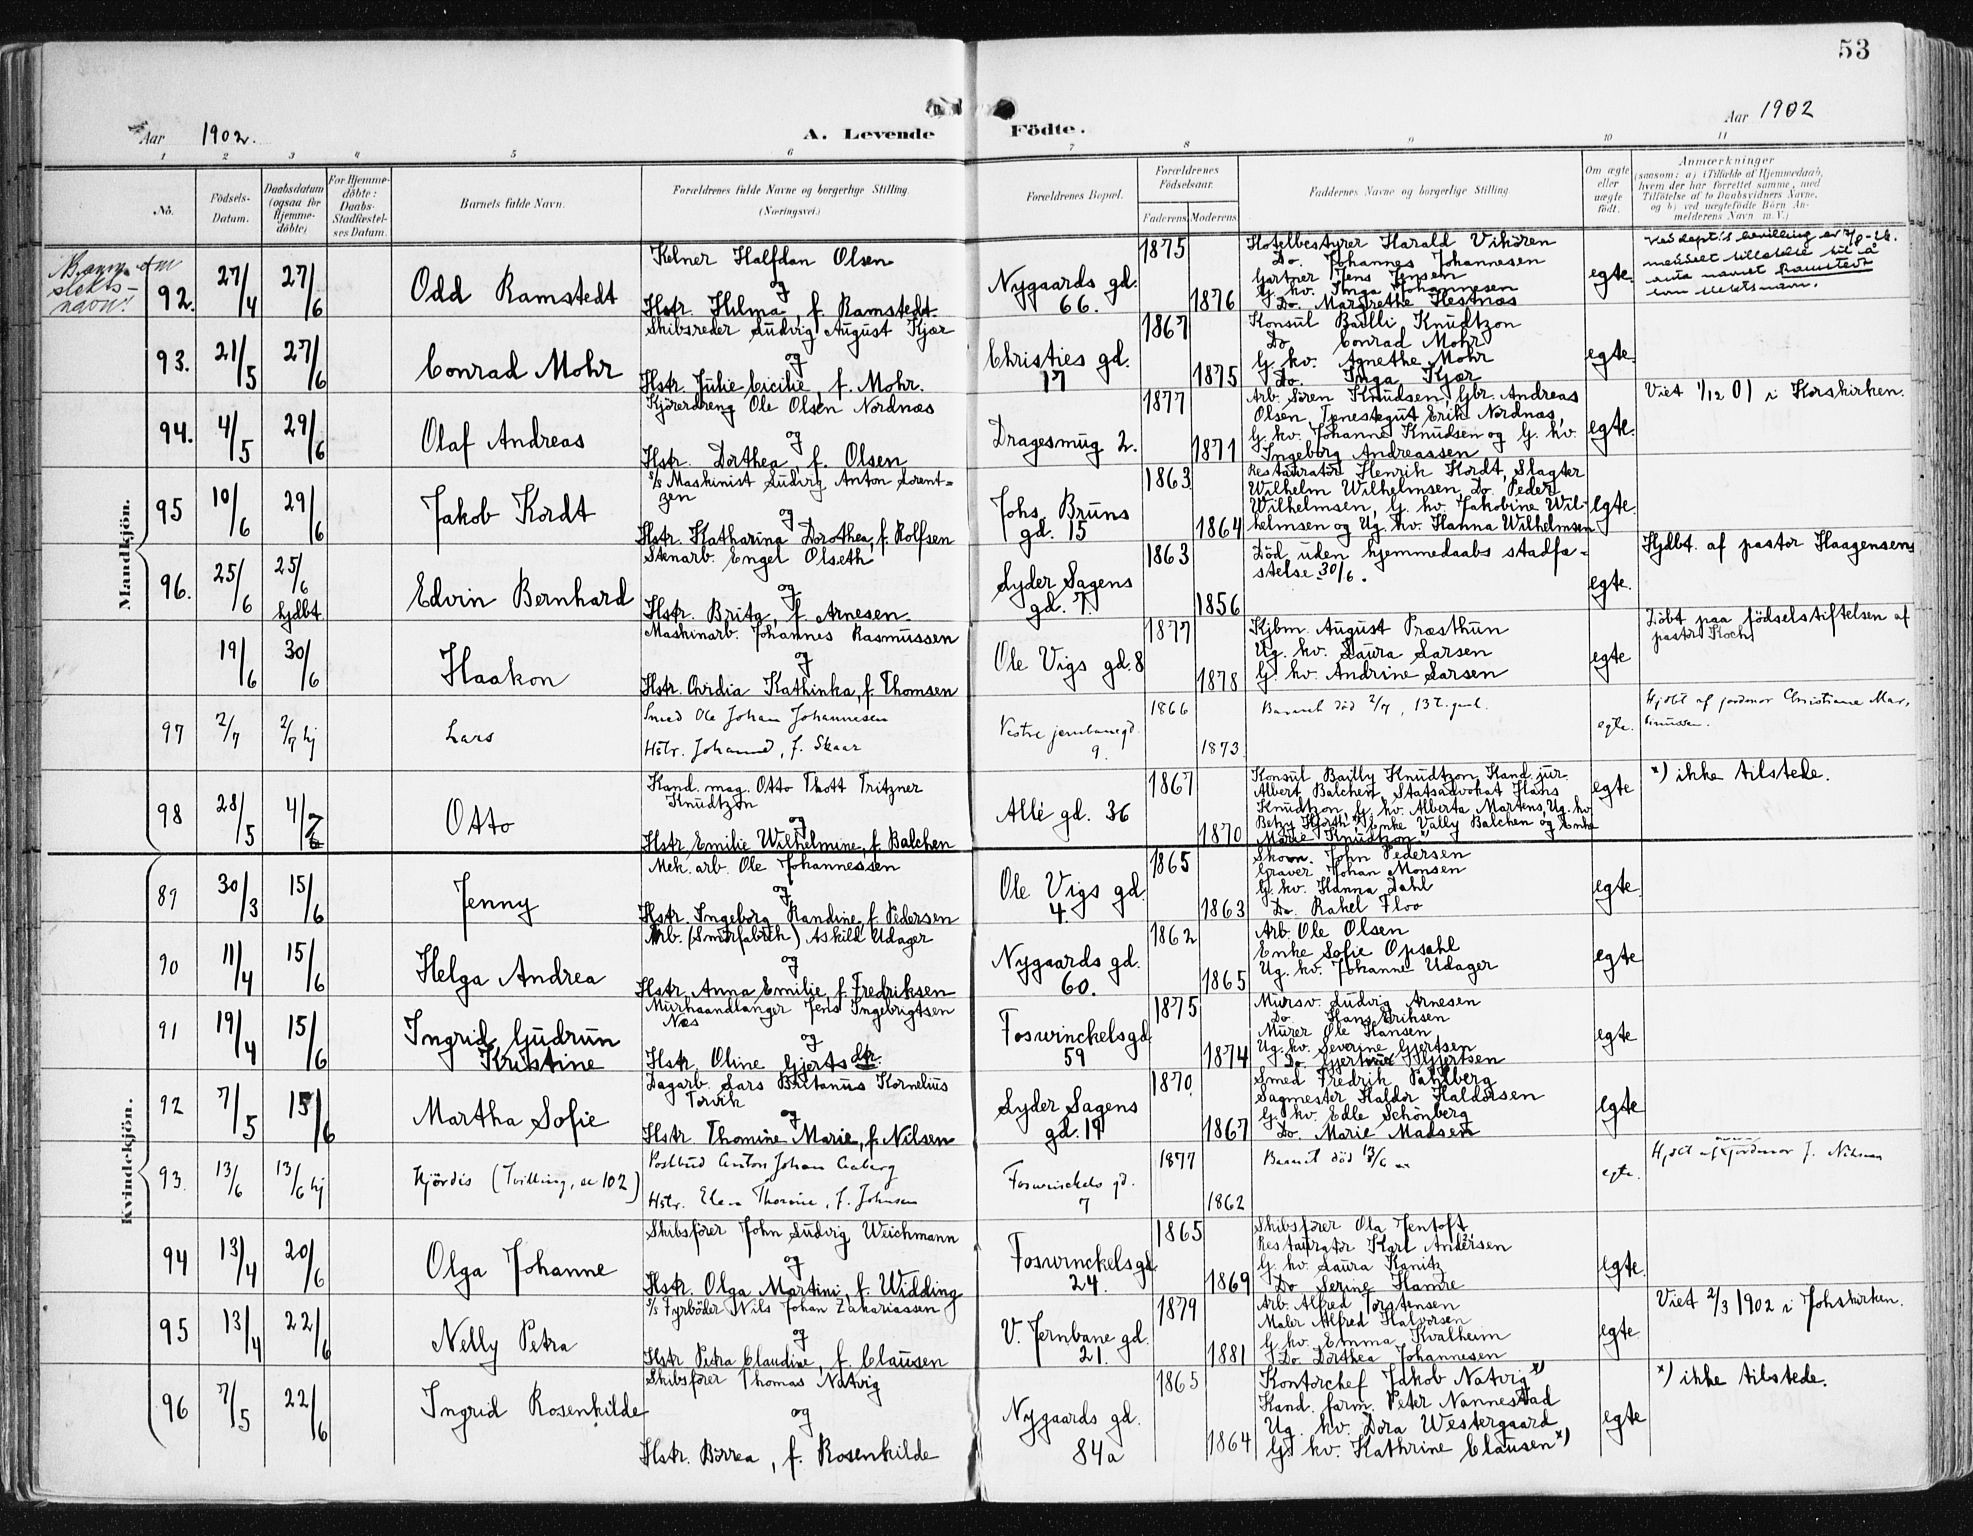 53
Aar 1902.
A. Levende Födte.
Aar 1902
1 2 3 4 5 6 7 8 9 10 11
No.
Födsels-Datum.
Daabsdatum (ogsaa for Hjemme-döbte)
For Hjemme-döbte: Daabs-Stadfæstel-ses Datum.
Barnets fulde Navn.
Forældrenes fulde Navne og borgerlige Stilling
(Næringsvei.)
Forældrenes Bopæl.
Forældrenes Födselsaar.
Faderens Moderens
Faddernes Navne og borgerlige Stilling
Om ægte eller uægte födt.
Anmærkninger
(saasom: a) i Tilfælde af Hjemmedaab,
hvem der har forrettet samme, med
Tilföielse af to Daabsvidners Navne,
og b) ved uægtefödte Börn An-
melderens Navn m. V.)
Mandkjön.
slekts-
navn!
92. 27/4 27/6 Odd Ramstedt
Kelner Halfdan Olsen
og
Hstr. Hilma, f. Ramstedt.
Nygaards gd.
66.
1875 1876
Hotelbestyrer Harald Vikören
Do. Johannes Johannesen
Gartner Jens Jensen
G. kv. Inga Johannesen
Do. Margrethe Hestnæs
egte.
Ved dept.s bevilling av 7/8-26.
meddelt tillatelse til å
anta navnet Ramstedt
som slektsnavn.
93. 21/5 27/6 Conrad Mohr
Skibsreder Ludvig August Kjær
og
Hstr. Julie Cicilie, f. Mohr.
Christies gd.
17
1867 1875
Konsul Bailli Knudtzon
Do. Conrad Mohr
G. kv. Agnethe Mohr
Do. Inga Kjær
egte.
94. 4/5 29/6 Olaf Andreas
Kjöredreng Ole Olsen Nordnæs
og
Hstr. Dorthea, f. Olsen
Dragesmug 2.
1877 1871
Arb. Sören Knudsen, Gbr. Andreas
Olsen, Tjenestegut Erik Nordnæs,
G. kv. Johanne Knudsen og G. kv.
Ingeborg Andreassen
egte.
Viet 1/12 01 i Korskirken.
95 10/6 29/6 Jakob Kordt
s/s Maskinist Ludvig Anton Lorent-
zen
og
Hstr. Katharina Dorothea, f. Rolfsen
Johs. Bruns
gd. 15
1863 1864
Restauratör Henrik Kordt, Slagter
Wilhelm Wilhelmsen, Do. Peder
Wilhelmsen, G. kv. Jakobine Wil-
helmsen og Ug. kv. Hanna Wilhelmsen
egte.
96. 25/6 25/6 hjdbt Edvin Bernhard
Stenarb. Engel Olseth
og
Hstr. Brita, f. Arnesen.
Lyder Sagens
gd. 7
1863 1856
Död uden hjemmedaabs stadfæ-
stelse 30/6.
egte.
Hjdbt. af pastor Haagensen
19/6 30/6 Haakon
Maskinarb. Johannes Rasmussen
og
Hstr. Ovidia Kathinka, f. Thomsen
Ole Vigs gd. 8
1877 1878
Kjbm. August Præsthun
Ug. kv. Laura Larsen
G. kv. Andrine Larsen
egte
Döbt paa födselstiftelsen af
pastor Koch
97 2/7 2/7 hj Lars
Smed Ole Johan Johannesen
Hstr. Johanne, f. Skaar
Vestre jernbanegd.
9.
1866 1873
Barnet död 2/7, 13 t. gml.
egte.
Hjdbt af jordmor Christiane Mar-
tinussen.
98 28/5 4/7 Otto
Kand. mag. Otto Thott Fritzner
Knudtzon
og
Hstr. Emilie Wilhelmine, f. Balchen
Allé gd. 36
1867 1870
Konsul Bailly Knudtzon, Kand. jur.
Albert Balchen, Statsadvokat Hans
Knudtzon, G. kv. Alberta Martens, Ug. kv.
Betzy Hjorth x), Enke Vally Balchen og Enke
Marie Knudtzon x)
egte
x) ikke tilstede.
Kvindekjön.
89 30/3 15/6 Jenny
Mek. arb. Ole Johannessen
og
Hstr. Ingeborg Randine, f. Pedersen
Ole Vigs gd.
4.
1865 1863
Skom. John Pedersen
Graver Johan Monsen
G. kv. Hanna Dahl
Do. Rakel Floo
egte.
90 11/4 15/6 Helga Andrea
Arb. (Smörfabrik) Askild Udager
og
Hstr. Anna Emilie, f. Fredriksen
Nygaards gd.
60.
1862 1865
Arb. Ole Olsen
Enke Sofie Opsahl
Ug. kv. Johanne Udager
egte
91 19/4 15/6 Ingrid Gudrun
Kristine
Murhaandlanger Jens Ingebrigtsen
Næs
og
Hstr. Oline Gjertsdtr.
Foswinckelsgd.
59
1875 1874
Mursv. Ludvig Arnesen
Do. Hans Eriksen
Murer Ole Hansen
Ug. kv. Severine Gjertsen
Do. Gjertrud Gjertsen
egte
92 7/5 15/6 Martha Sofie
Dagarb. Lars Britanus Kornelius
Torvik
og
Hstr. Thomine Marie, f. Nilsen
Lyder Sagens
gd. 19
1870 1867
Smed Fredrik Pahlberg
Sagmester Haldor Haldorsen
G. kv. Edle Schönberg
Do. Marie Madsen
egte
93. 13/6 13/6 hj Hjördis (Tvilling, se 102)
Postbud Anton Johan Aaberg
Hstr. Elen Thorine, f. Johnsen
Foswinckels gd.
7
1877 1862
Barnet död 13/6
egte.
Hjdbt af jordmor J. Nilsen
94 13/4 20/6 Olga Johanne
Skibsförer John Ludvig Weichmann
og
Hstr. Olga Martini, f. Widding
Foswinckelsgd.
24.
1865 1869
Skibsförer Ola Jentoft
Restauratör Karl Andersen
G. kv. Laura Kanitz
Do. Serine Hamre
egte.
95 13/4 22/6 Nelly Petra
s/s Fyrböder Nils Johan Zakariassen
og
Hstr. Petra Claudine, f. Clausen
V. Jernbane gd.
21.
1879 1881
Arb. Alfred Torstensen
Maler Alfred Halvorsen
G. kv. Emma Kvalheim
Do. Dorthea Johannesen
egte.
Viet 2/3 1902 i Johskirken.
96 7/5 22/6 Ingrid Rosenkilde
Skibsförer Thomas Natvig
og
Hstr. Börrea, f. Rosenkilde
Nygaards gd.
84a
1865 1864
Kontorchef Jakob Natvig x)
Kand. farm. Peter Nannestad
Ug. kv. Dora Westergaard
G. kv. Kathrine Clausen x)
egte
x) ikke tilstede.